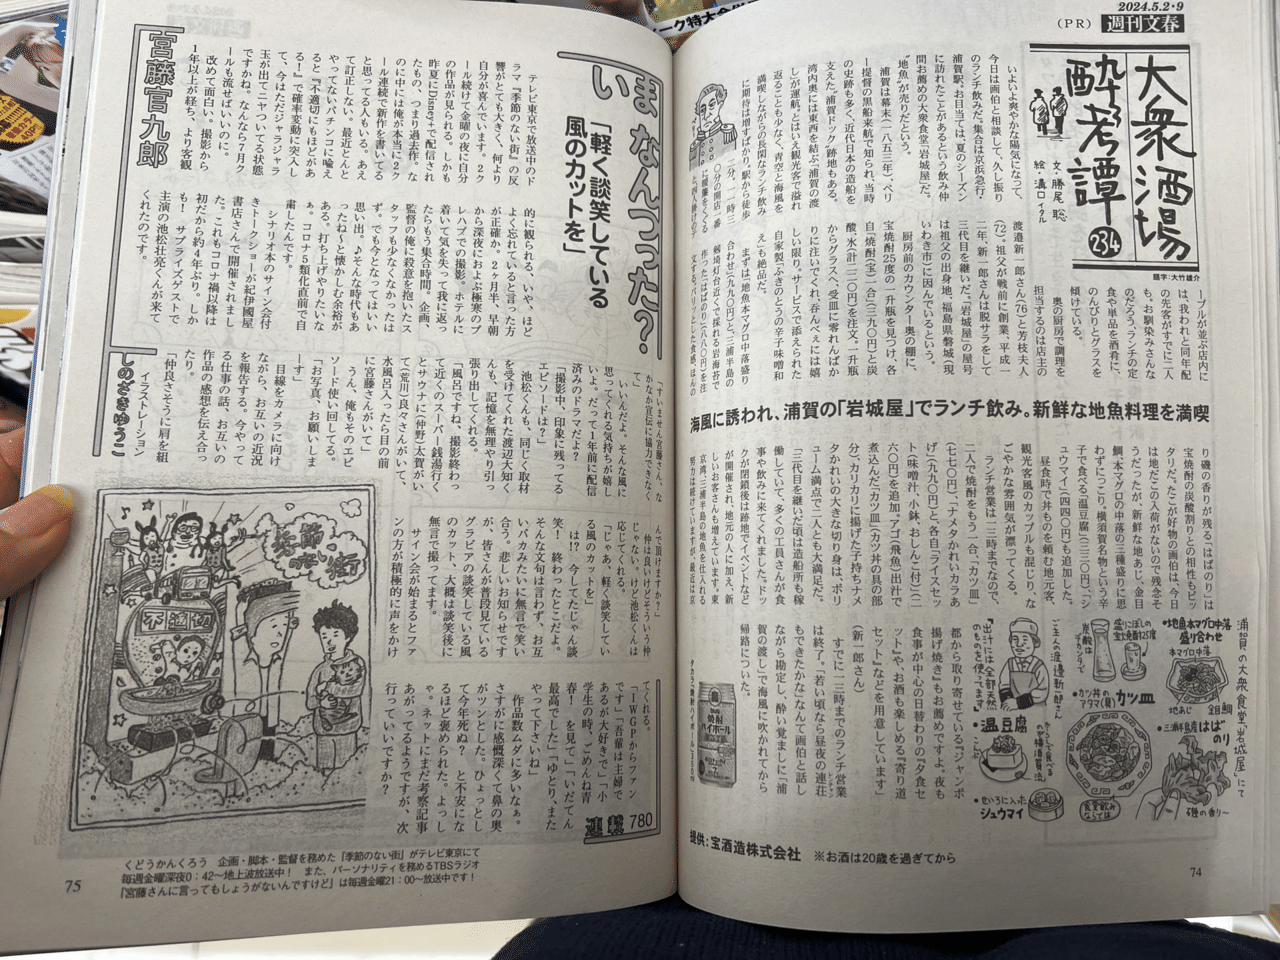 2024.5.2・9
(PR) 週刊文春
大衆酒場
酔考譚
234
文・勝尾 聡
絵・溝口イタル
題字：大竹雄介
いよいよ爽やかな陽気になって、
今日は画伯と相談して、久し振り
のランチ飲みだ。集合は京浜急行・
浦賀駅。お目当ては、夏のシーズン
に訪れたことがあるという飲み仲
間お薦めの大衆食堂「岩城屋」だ。
〝地魚〟が売りだという。
浦賀は幕末(一八五三年)、ペリ
ー提督の黒船来航で知られ、当時
の史跡も多く、近代日本の造船を
支えた「浦賀ドック」跡地もある。
湾内奥には東西を結ぶ「浦賀の渡
し」が運航。とはいえ観光客で溢れ
返ることも少なく、青空と海風を
満喫しながらの長閑なランチ飲み
に期待は増すばかり。駅から徒歩
二分、一一時三
〇分の開店一番
に暖簾をくぐる
と、四人掛けのテ
ーブルが並ぶ店内に
は、我われと同年配
の先客がすでに二人
も。お馴染みさんな
のだろう、ランチの定
食や単品を酒肴に、
のんびりとグラスを
傾けている。
奥の厨房で調理を
担当するのは店主の
渡邉新一郎さん(76)と芳枝夫人
(72)。祖父が戦前に創業、平成一
二年、新一郎さんは脱サラをして
三代目を継いだ。「岩城屋」の屋号
は祖父の出身地、福島県磐城(現
いわき市)に因んでいるという。
厨房前のカウンター奥の棚に、
宝焼酎25度の一升瓶を見つけ、各
自「焼酎(宝)一合(三九〇円)と炭
酸氷(計二一〇円)を注文。一升瓶
からグラスへ、受皿に零れんばか
りに注いでくれ、呑んべぇには嬉
しい限り。サービスで添えられた
自家製「ふきのとうの辛子味噌和
え」も絶品だ。
まずは「地魚本マグロ中落盛り
合わせ(九九〇円)」と、三浦半島の
剱埼灯台近くで採れる岩海苔で
作った「はばのり(八八〇円)」を注
文する。パリッとした食感、ほんの
海風に誘われ、浦賀の「岩城屋」でランチ飲み。新鮮な地魚料理を満喫
り磯の香りが残る「はばのり」は
宝焼酎の炭酸割りとの相性もピッ
タリだ。たこが好物の画伯は、今日
は地だこの入荷がないので残念そ
うだったが、新鮮な地あじ、金目
鯛、本マグロの中落の三種盛りに思
わずにっこり、横須賀名物という辛
子で食べる「温豆腐(三三〇円)」、「シ
ュウマイ」(四四〇円)も追加した。
昼食時で丼ものを頼む地元客、
観光客風のカップルも混じり、な
ごやかな雰囲気が漂ってくる。
ランチ営業は一三時までなので、
二人で焼酎をもう一合、「カツ皿」
(七七〇円)、「ナメタかれいカラあ
げ」(九九〇円)と、各自「ライスセッ
ト(味噌汁、小鉢、おしんこ付)(二
六〇円)を追加。アゴ(飛魚)出汁で
煮込んだ「カツ皿」(カツ丼の具の部
分)、カリカリに揚げた子持ちナメ
タかれいの大きな切り身は、ボリ
ューム満点で二人とも大満足だ。
「三代目を継いだ頃は造船所も稼
働していて、多くの工員さんが食
事や飲みに来てくれました。ドッ
クが閉鎖後は跡地でイベントなど
が開催され、地元の人に加え、新
しいお客さんも増えています。東
京湾、三浦半島の地魚を仕入れる
努力は続けていますが、最近は京
都から取り寄せている『ジャンボ
揚げ焼き』もお薦めですよ。夜も
食事が中心の日替わりの『夕食セ
ット』や、お酒も楽しめる『寄り道
セット』などを用意しています」
(新一郎さん)
すでに一三時までのランチ営業
は終了。「若い頃なら昼夜の連荘
もできたかな」なんて画伯と話し
ながら勘定し、酔い覚ましに「浦
賀の渡し」で海風に吹かれてから
帰路についた。
浦賀の大衆食堂「岩城屋」にて
・地魚本マグロ中落
盛り合わせ
本マグロ中落
地あじ
金目鯛
・三浦半島産はばのり
磯の香り〜
盛りこぼしの
宝焼酎25度
炭酸は
・カツ丼の
アタマ(具)カツ皿
食堂飲み
ならでは
ご主人の渡邉新一郎さん
「出汁には全部天然
のものを使ってます」
・温豆腐
こんぶ
・せいろに入った
シュウマイ
焼酎
ハイボール
提供：宝酒造株式会社 ※お酒は20歳を過ぎてから
74
いまなんつった？
「軽く談笑している
風のカットを」
宮藤官九郎
テレビ東京で放送中のド
ラマ『季節のない街』の反
響がとても大きく、何より
自分が喜んでいます。2ク
ール続けて金曜の夜に自分
の作品が見られる。しかも
昨夏にDisney+で配信され
たもの、つまり過去作。な
のに中には俺が本当に2ク
ール連続で新作を書いてる
と思ってる人もいる。あえ
て訂正しない。最近とんと
やってないパチンコに喩え
ると『不適切にもほどがあ
る！』で確率変動に突入し
て、今はただジャラジャラ
玉が出てニヤついてる状態
ですかね。なんなら7月ク
ールも流せばいいのに。
改めて面白い。撮影から
1年以上が経ち、より客観
的に観られる、いや、ほど
よく忘れていると言った方
が正確か。2ヶ月半、早朝
から深夜におよぶ極寒のプ
レハブでの撮影。ホテルに
着いて気を失って我に返っ
たらもう集合時間。企画、
監督の俺に殺意を抱いたス
タッフも少なくなかったは
ず。でも今となってはいい
思い出。♪そんな時代もあ
ったね〜と懐かしむ余裕が
ある。打ち上げやりたいな
ぁ。コロナ5類化直前で自
粛したんです。
シナリオ本のサイン会付
きトークショーが紀伊國屋
書店さんで開催されまし
た。これもコロナ禍以降は
初だから約4年ぶり。しか
も！ サプライズゲストで
主演の池松壮亮くんが来て
くれたのです。
「すいません宮藤さん、な
かなか宣伝に協力できなく
て」
いいんだよ。そんな風に
思ってくれる気持ちが嬉し
いよ。だって1年前に配信
済みのドラマだよ？
「撮影中、印象に残ってる
エピソードは？」
池松くんも、同じく取材
を受けてくれた渡辺大知く
んも、記憶を無理やり引っ
張り出してくれる。
「風呂ですね、撮影終わっ
て近くのスーパー銭湯行く
とサウナに(仲野)太賀がい
て(荒川)良々さんがいて、
水風呂入ったら目の前
に宮藤さんがいて」
うん、俺もそのエピ
ソード使い回してる。
「お写真、お願いしま
す」
目線をカメラに向け
ながら、お互いの近況
を報告する。今やって
る仕事の話、お互いの
作品の感想を伝え合っ
たり。
「仲良さそうに肩を組
イラストレーション
しのざきゆうこ
んで頂けますか？」
仲は良いけどそういう仲
じゃない。けど池松くんは
応じてくれる。
「じゃあ、軽く談笑してい
る風のカットを」
は!?　今してたじゃん談
笑！ 終わったとこだよ。
そんな文句は言わず、お互
いバカみたいに無言で笑い
合う。悲しいお知らせです
が、皆さんが普段見ている
グラビアの談笑している風
のカット、大概は談笑後に
無言で撮ってます。
サイン会が始まるとファ
ンの方が積極的に声をかけ
てくれる。
「IWGPからファン
です」「吾輩は主婦で
あるが大好きで」「小
学生の時、ごめんね青
春！ を見て」「いだてん
最高でした」「ゆとり、また
やって下さいね」
作品数ムダに多いなぁ。
さすがに感慨深くて鼻の奥
がツンとした。ひょっとし
て今年死ぬ？ と不安にな
るほど褒められた。よっし
ゃ。ネットにまだ考察記事
あがってるようですが、次
行っていいですか？
連載 780
季節のない街
不適切
くどうかんくろう 企画・脚本・監督を務めた「季節のない街」がテレビ東京にて
毎週金曜深夜0：42〜地上波放送中！ また、パーソナリティを務めるTBSラジオ
『宮藤さんに言ってもしょうがないんですけど』は毎週金曜21：00〜放送中です！
75